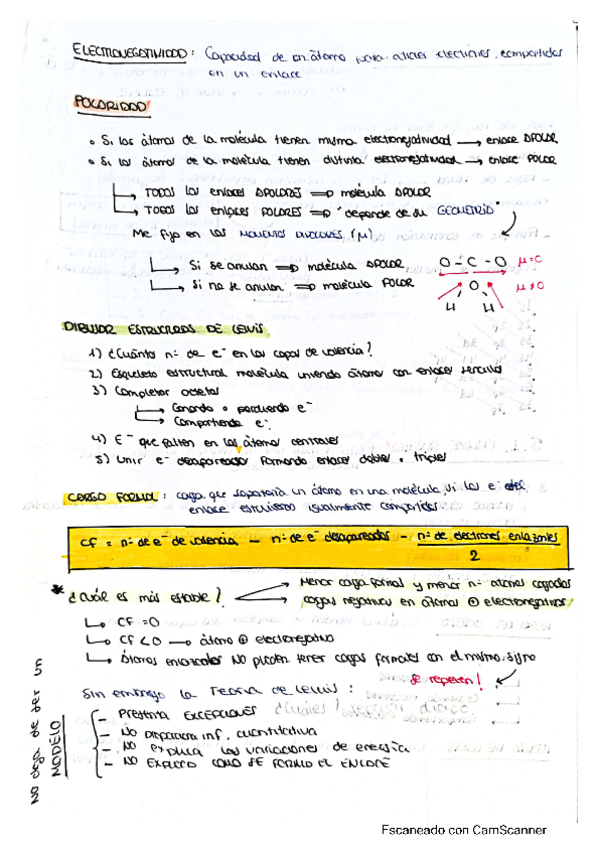 ELECTRONEGATIVIDAD: Capacidad de un átomo para atraer electrones compartidos
en un enlace
POLARIDAD
• Si los átomos de la molécula tienen misma electronegatividad → enlace APOLAR
• Si los átomos de la molécula tienen distinta electronegatividad → enlace POLAR
↳ TODOS los enlaces APOLARES ⇒ molécula APOLAR
↳ TODOS los enlaces POLARES ⇒ "depende de su GEOMETRÍA"
Me fijo en los MOMENTOS DIPOLARES (μ)
↳ Si se anulan ⇒ molécula APOLAR O - C - O μ=0
↳ Si no se anulan ⇒ molécula POLAR O μ≠0
H H
DIBUJAR ESTRUCTURAS DE LEWIS
1) ¿Cuántos nº de e⁻ en las capas de valencia?
2) Esqueleto estructural molécula uniendo átomos con enlaces sencillos
3) Completar octetos
↳ Ganando o perdiendo e⁻
↳ Compartiendo e⁻
4) E⁻ que falten en los átomos centrales
5) Unir e⁻ desapareado formando enlaces dobles o triples
CARGA FORMAL: carga que soportaría un átomo en una molécula, si los e⁻ del
enlace estuviesen igualmente compartidos
CF = nº de e⁻ de valencia - nº de e⁻ desapareados - nº de electrones enlazantes
2
* ¿Cuál es más estable? Menor carga formal y menor nº átomos cargados
cargas negativas en átomos ⊕ electronegativos
↳ CF =0
↳ CF <0 → átomo ⊕ electronegativo
↳ Átomos enlazados NO pueden tener cargas formales con el mismo signo
Se repelen!
Sin embargo la Teoría de Lewis:
- Presenta EXCEPCIONES
- NO proporciona inf. cuantitativa
- NO explica las variaciones de energía
- NO EXPLICA COMO SE FORMA EL ENLACE
NO deja de ser un
MODELO
Escaneado con CamScanner